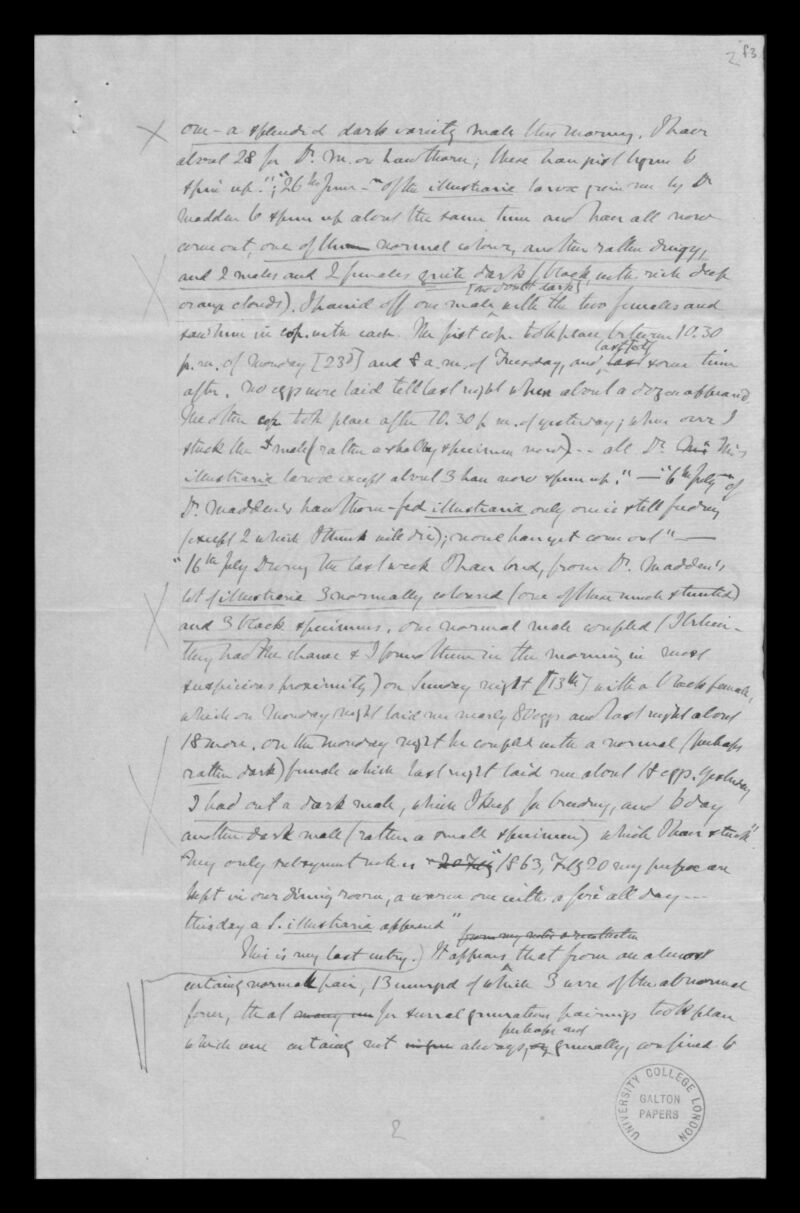 2 f3
one - a splendid dark variety male this morning. I have
about 28 for Dr. M. on hawthorn; these have just begun to
spin up."; "26th June - of the illustraria larvæ given me by Dr
Madden 6 spun up about the same time and have all now
come out, one of them normal colour, another rather dingy,
and 2 males and 2 females quite dark (black, with rich deep
orange clouds). I paired off one male [no doubt dark] with the two females and
saw him in cop. with each. The first cop. took place between 10.30
p.m. of Monday [23d] and 8 a.m. of Tuesday, and lasted some time
after. No eggs were laid till last night when about a dozen appeared.
The other cop. took place after 10.30 p.m. of yesterday; when over I
stuck the male (rather a shabby specimen now) -- all Dr. M's
illustraria larvæ except about 3 have now spun up." — "6th July of
Dr. Madden's hawthorn-fed illustraria only one is still feeding
(except 2 which I think will die); none have yet come out" —
"16th July During the last week I have bred, from Dr. Madden's
lot of illustraria 3 normally coloured (one of these much stunted)
and 3 black specimens. One normal male coupled (I believe -
they had the chance & I found them in the morning in most
suspicious proximity) on Sunday night [13th] with a black female,
which on Monday night laid me nearly 80 eggs and last night about
18 more. On the Monday night he coupled with a normal (perhaps
rather dark) female which last night laid me about 18 eggs. Yesterday
I had out a dark male, which I keep for breeding, and to day
another dark male (rather a small specimen) which I have stuck".
My only subsequent note is "1863, Feb 20 my pupæ are
kept in our dining room, a warm one with a fire all day --
this day a S. illustraria appeared"
from my notes & recollection
This is my last entry.) It appears that from an almost
certainly normal pair, 13 emerged of which 3 were of the abnormal
form, that for several generations pairings took place
which were certainly not always, perhaps not generally, confined to
2
UNIVERSITY COLLEGE LONDON
GALTON
PAPERS